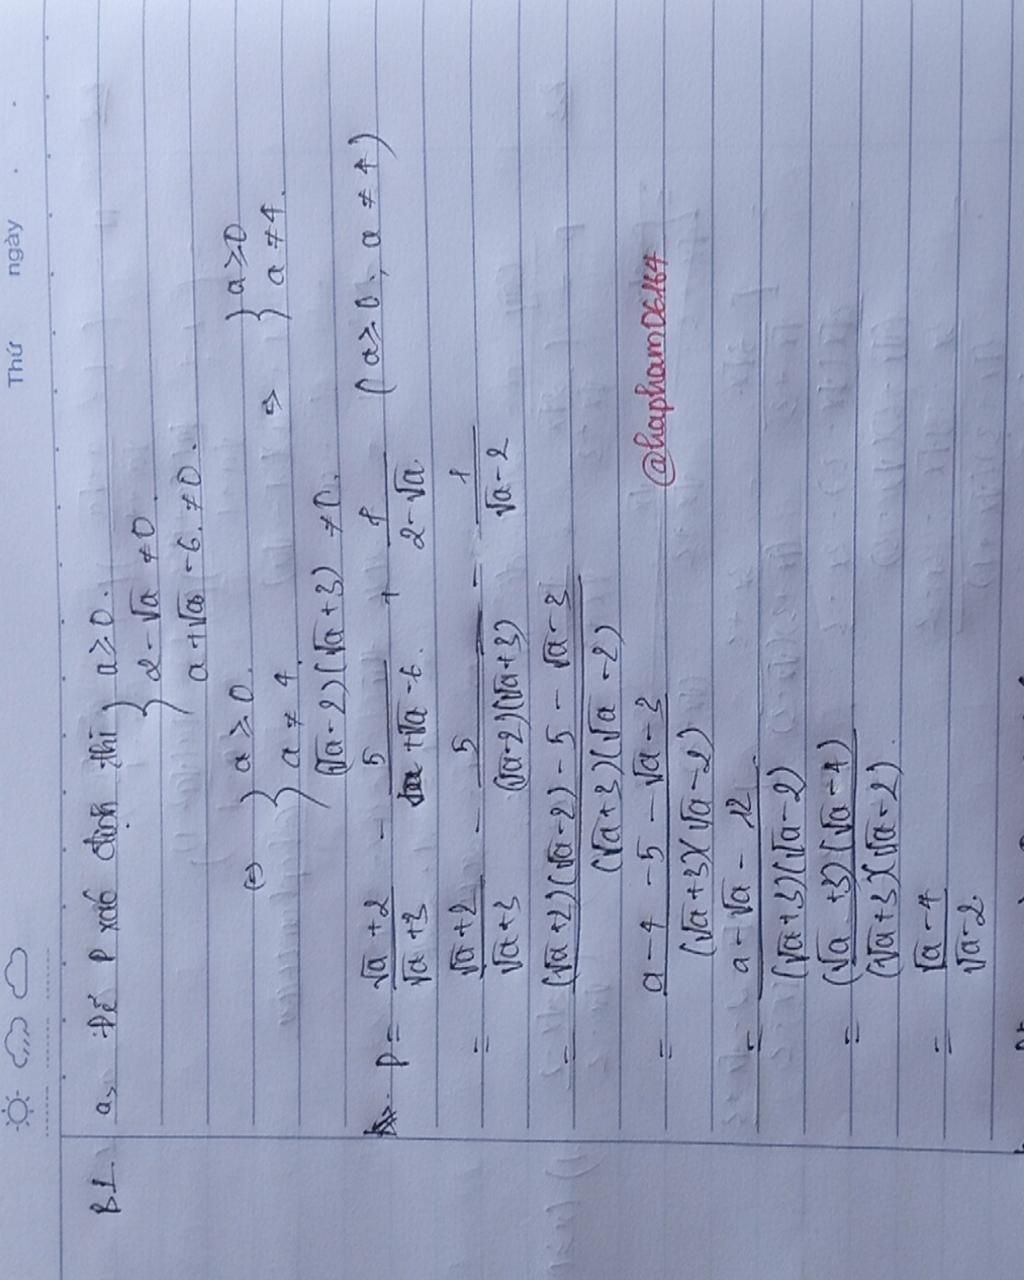 Thứ ngày
B1 a, Để P xác định thì { a ≥ 0.
2 - √a ≠ 0
a + √a - 6 ≠ 0.
(=) { a ≥ 0
a ≠ 4
(√a - 2)(√a + 3) ≠ 0.
=> { a ≥ 0
a ≠ 4.
P = (√a + 2)/(√a + 3) - 5/(a + √a - 6) + 1/(2 - √a) (a ≥ 0, a ≠ 4)
= (√a + 2)/(√a + 3) - 5/((√a - 2)(√a + 3)) - 1/(√a - 2)
= ((√a + 2)(√a - 2) - 5 - √a - 3)/((√a + 3)(√a - 2))
= (a - 4 - 5 - √a - 3)/((√a + 3)(√a - 2))
= (a - √a - 12)/((√a + 3)(√a - 2))
= ((√a + 3)(√a - 4))/((√a + 3)(√a - 2))
= (√a - 4)/(√a - 2)
@hapham06164